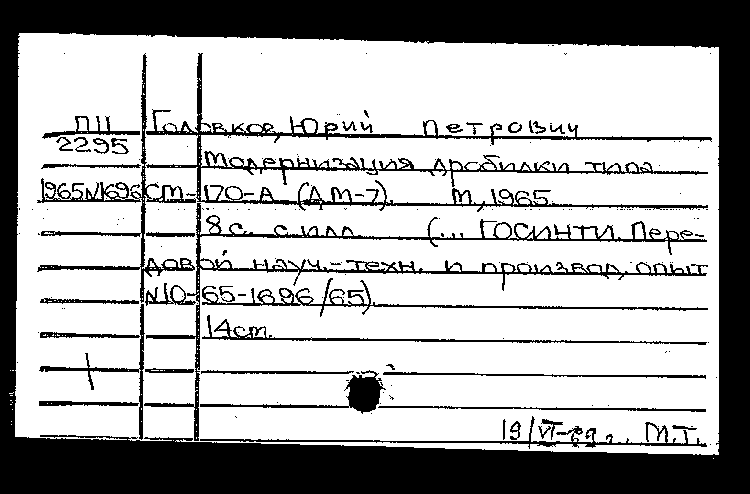 П11 Головков, Юрий Петрович
2295
Модернизация дробилки типа
1965N1696 СМ-170-А (ДМ-7). М, 1965.
8 с. с илл. (... ГОСИНТИ. Пере-
довой науч.-техн. и производ. опыт
N10-65-1696/65).
14 см.
19/VI-69 г. М.Т.